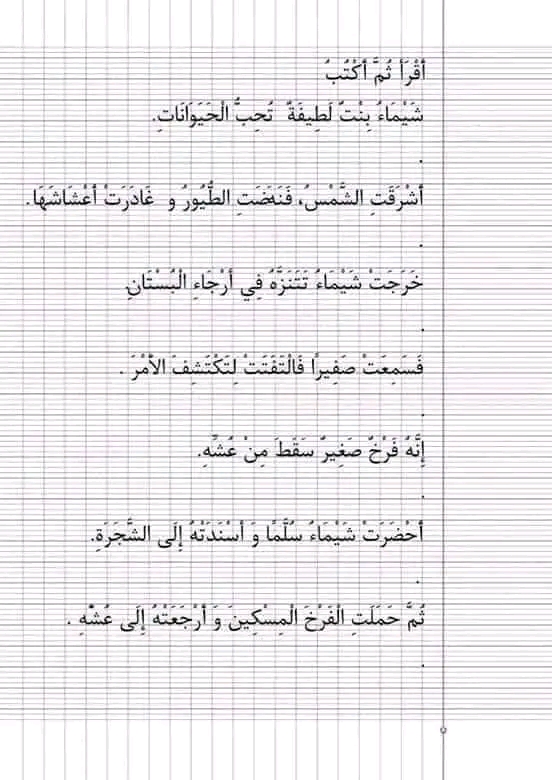 أَقْرَأُ ثُمَّ أَكْتُبُ
شَيْمَاءُ بِنْتٌ لَطِيفَةٌ تُحِبُّ الْحَيَوَانَاتِ.
.
أَشْرَقَتِ الشَّمْسُ، فَنَهَضَتِ الطُّيُورُ و غَادَرَتْ أَعْشَاشَهَا.
.
خَرَجَتْ شَيْمَاءُ تَتَنَزَّهُ فِي أَرْجَاءِ الْبُسْتَانِ.
.
فَسَمِعَتْ صَفِيرًا فَالْتَفَتَتْ لِتَكْتَشِفَ الأَمْرَ .
.
إِنَّهُ فَرْخٌ صَغِيرٌ سَقَطَ مِنْ عُشِّهِ.
.
أَحْضَرَتْ شَيْمَاءُ سُلَّمًا وَ أَسْنَدَتْهُ إِلَى الشَّجَرَةِ.
.
ثُمَّ حَمَلَتِ الْفَرْخَ الْمِسْكِينَ وَ أَرْجَعَتْهُ إِلَى عُشِّهِ .
.